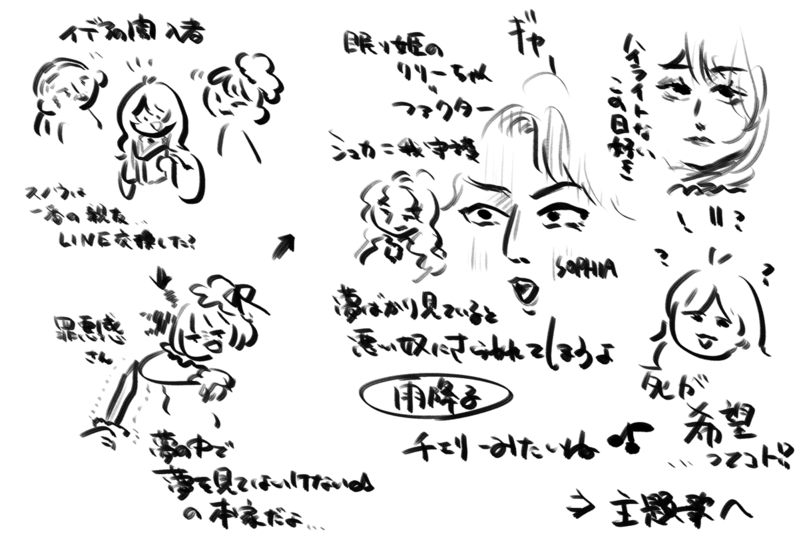 イデアの闖入者
スノウは
一番の親友…
LINE交換した?
罪悪感
さん
夢の中で
夢を見てはいけない♪
の本家だよ…
ギャー
眠り姫の
リリーちゃん
ファクター
SOPHIA
夢ばかり見ていると
悪い奴にさらわれてしまうよ
雨降子
チェリーみたいね♪
ハイライトない
この目好き
!!?
?
?
死が
希望
…ってコト!?
⇒主題歌へ